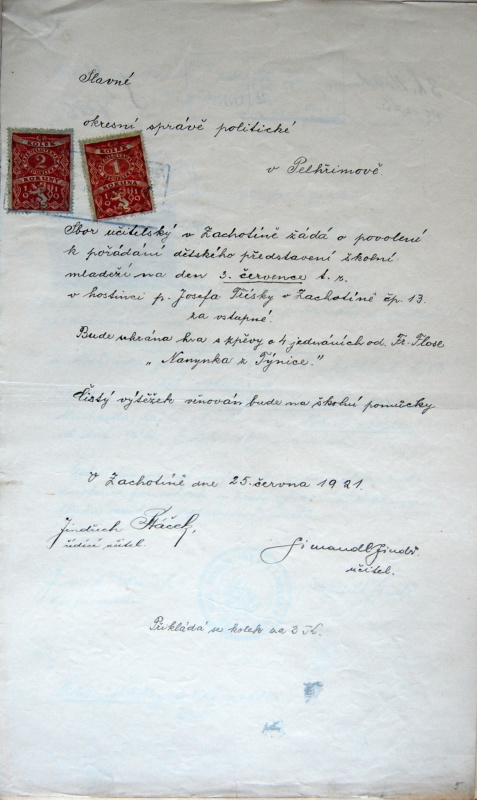 Slavné
okresní správě politické
v Pelhřimově
KOLEK
2
KORUNA
KOLEK
1
KORUNA
Sbor učitelský v Zachotíně žádá o povolení
k pořádání dětského představení školní
mládeží na den 3. července t. r.
v hostinci p. Josefa Třísky v Zachotíně čp. 13.
za vstupné.
Bude sehrána hra s zpěvy o 4 jednáních od Fr. Flose
„Nanynka z Týnice."
Čistý výtěžek věnován bude na školní pomůcky
V Zachotíně dne 25. června 1921.
Jindřich
řídící učitel.
učitel.
Přikládá se kolek za 3 K.
5